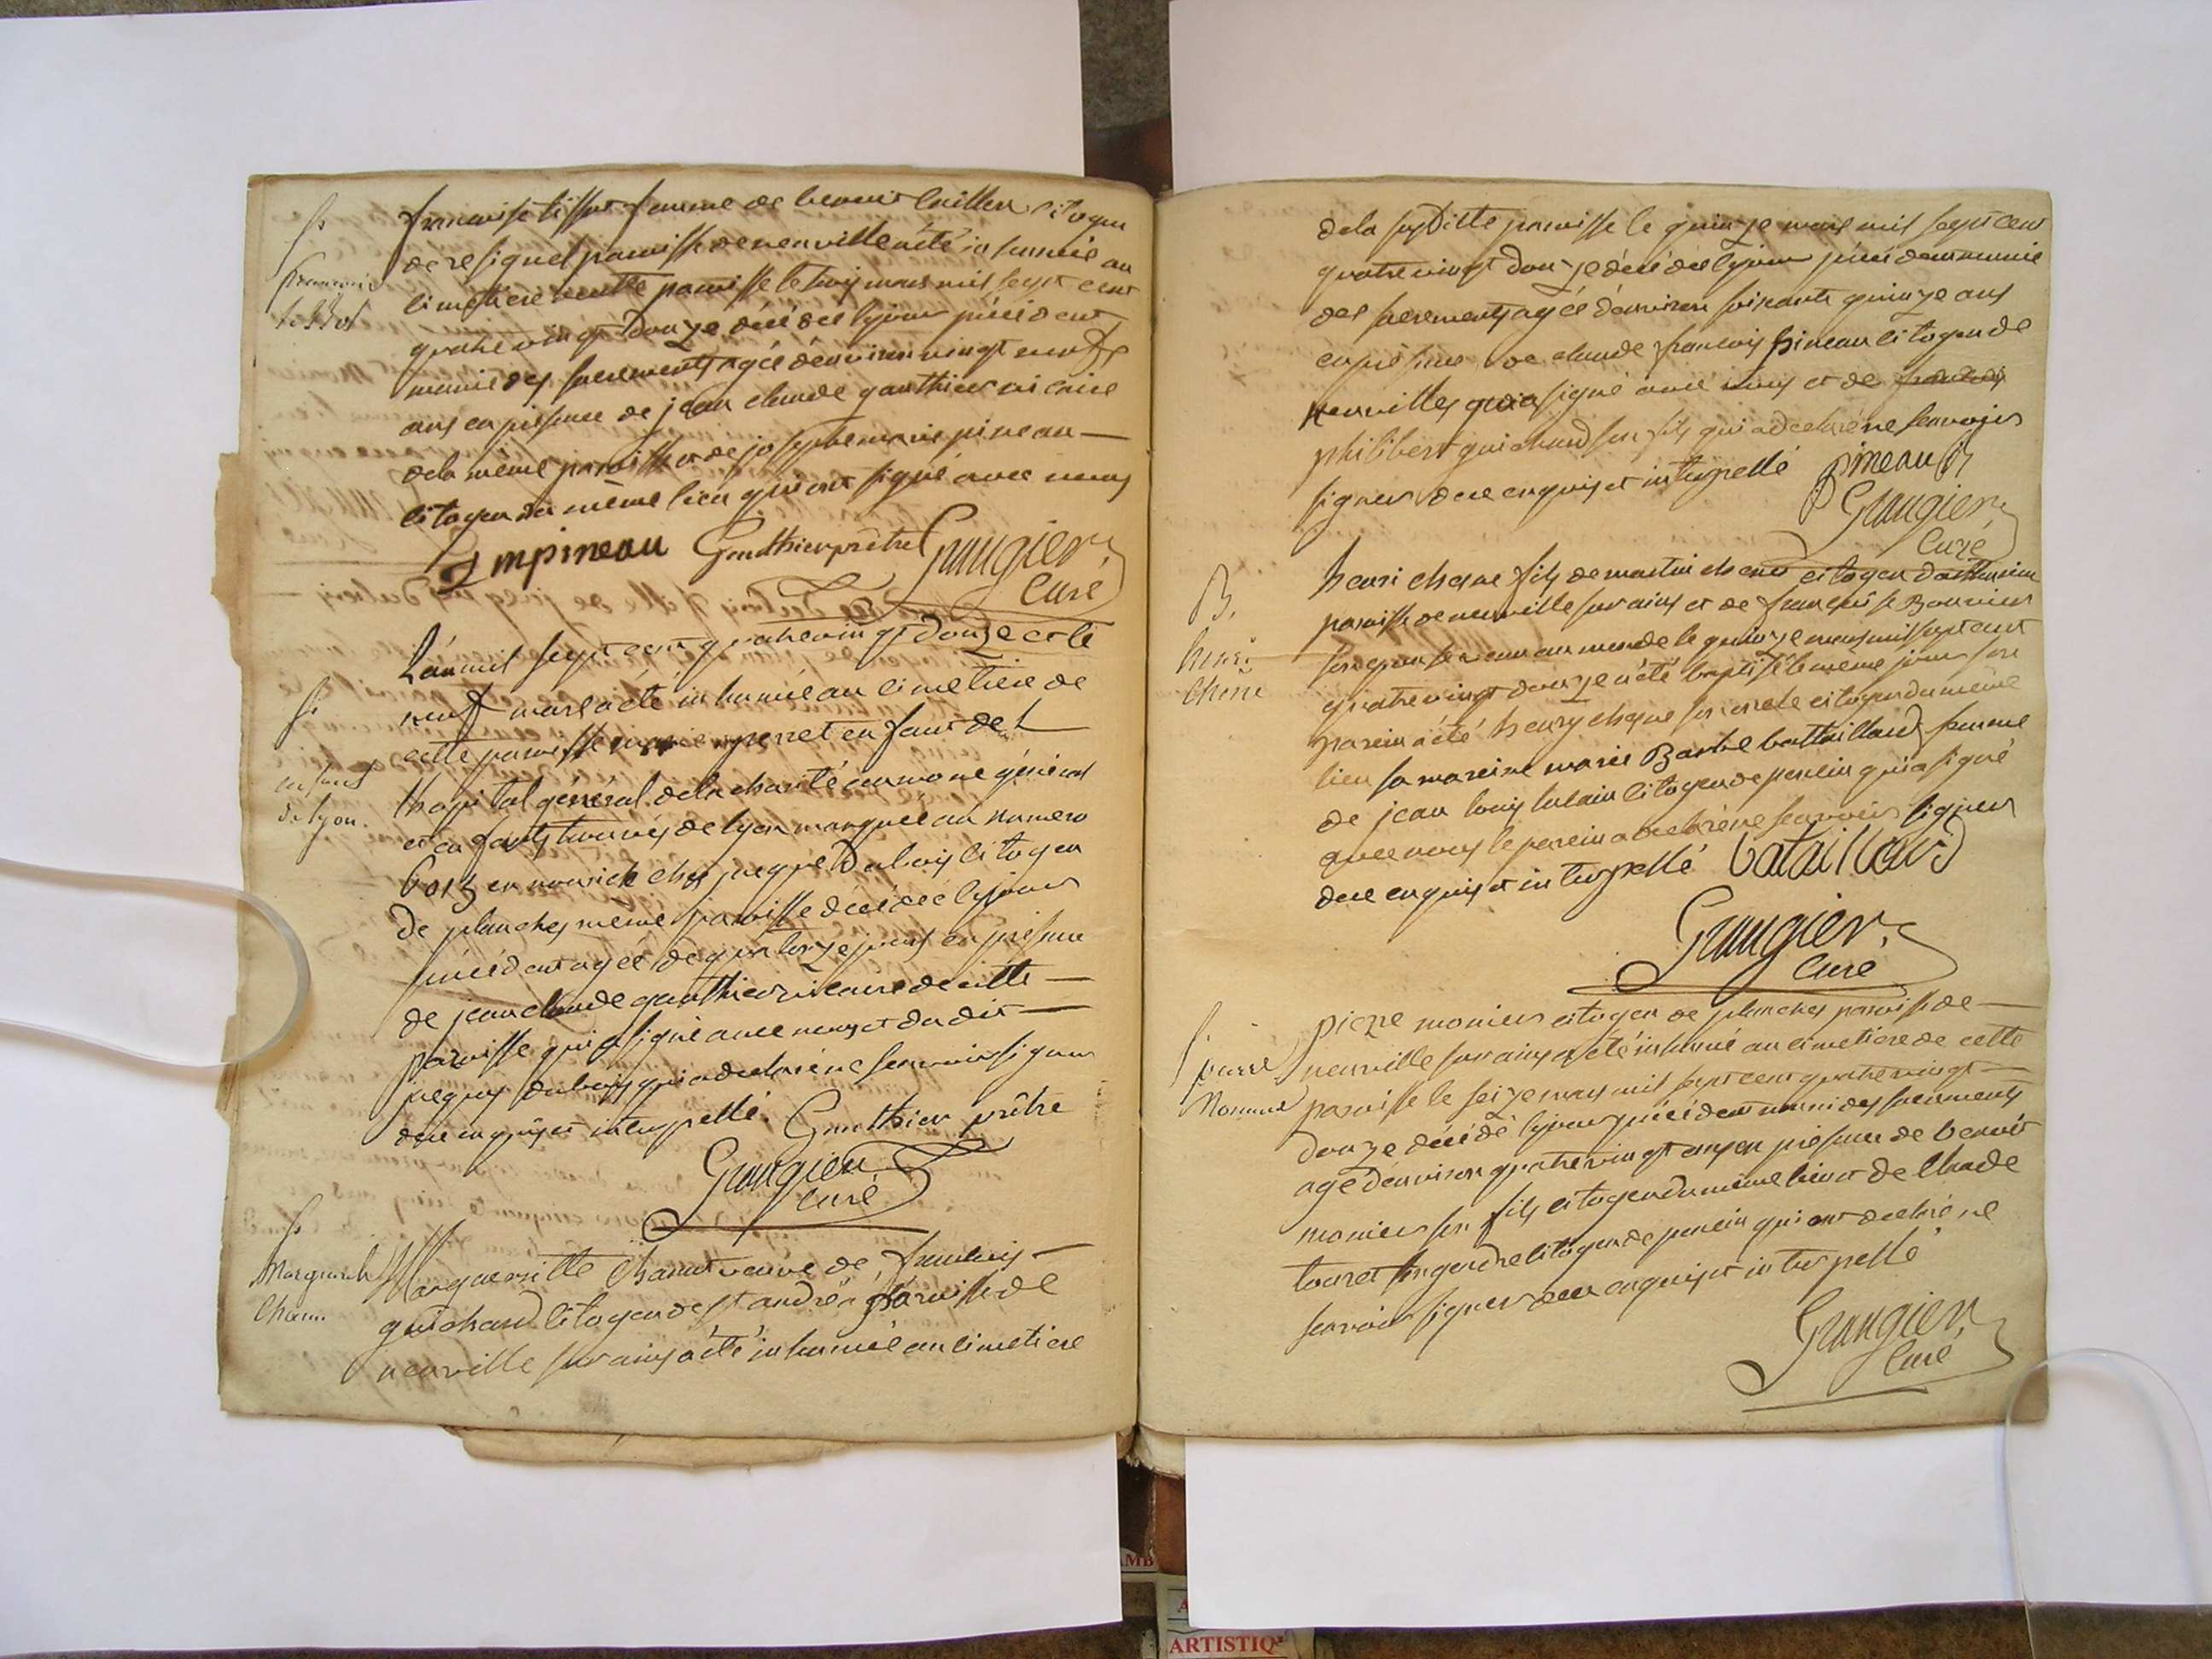 françoise tissot femme de benoit cuillier citoyen
de resignel paroisse de neuville a été inhumée au
cimetiere cette paroisse le trois mars mil sept cent
quatre vingt douze décédée le jour précédent
munie des sacrements agée d'environ vingt neuf
ans en presence de jean claude gauthier vicaire
de la même paroisse et de joseph marie pineau
citoyen du même lieu qui ont signé avec nous
J m pineau Gauthier prêtre Graugier
Curé
S
françoise
tissot
L'an mil sept cent quatre vingt douze et le
neuf mars a été inhumée au cimetiere de
cette paroisse marie perret enfant de l
hopital général de la charité aumone général
et enfants trouvés de lyon marquée au numero
en nourrice chez jacque Dubois citoyen
de planches même paroisse décédée le jour
précédent agée de quatorze jours en présence
de jean claude gauthier vicaire de cette
paroisse qui a signé avec nous et du dit
jacques dubois qui a declaré ne scavoir signer
de ce enquis et interpellé. Gauthier prêtre
Graugier
Curé
S
enfant
de lyon.
Margueritte Chanut veuve de francois
guichard citoyen de st andré paroisse de
neuville sur ains a été inhumée au cimetiere
S
Marguerite
Chan..
de la susditte paroisse le quinze mars mil sept cent
quatre vingt douze décédée le jour précédent munie
des sacrements agée d'environ soixante quinze ans
en présence de claude francois pineau citoyen de
neuville qui a signé avec nous et de
philibert guichard son fils qui a declaré ne scavoir
signer de ce enquis et interpellé pineau
Graugier
Curé
henri chesne fils de martin chesne citoyen
paroisse de neuville sur ains et de françoise Bouvier
son epouse venu au monde le quinze mars mil sept cent
quatre vingt douze a été baptisé le meme jour son
parein a été henry chesne son oncle citoyen du même
lieu sa mareine marie Barbe battaillard femme
de jean louis lulain citoyen de poncin qui a signé
avec nous le parein a declaré ne scavoir signer
de ce enquis et interpellé bataillard
Graugier
Curé
B.
henri
Chene
pierre monier citoyen de planches paroisse de
neuville sur ains a été inhumé au cimetiere de cette
paroisse le seize mars mil sept cent quatre vingt
douze décédé le jour précédent muni des sacrements
agé d'environ quatre vingt ans en présence de benoit
monier son fils citoyen du même lieu et de claude
touret son gendre citoyen de poncin qui ont declaré ne
scavoir signer de ce enquis et interpellé
Graugier
Curé
S
pierre
Monnier
ARTISTIQ